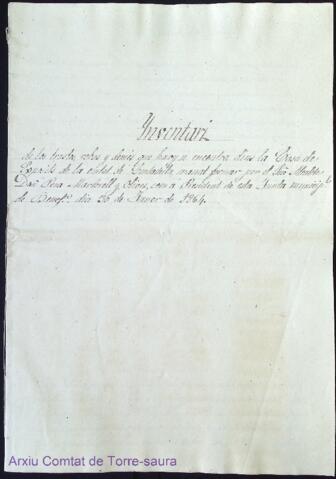 Inventari
de los trastos, robes y demés que hary se encontra dins la Casa de
Exposits de la ciutat de Ciutadella, manat formar per el Sor Alcalde
Dn Pera Martorell y Olives, com a President de esta Junta municipl
de Benefa dia 26 de Janer de 1864.
Arxiu Comtat de Torre-saura